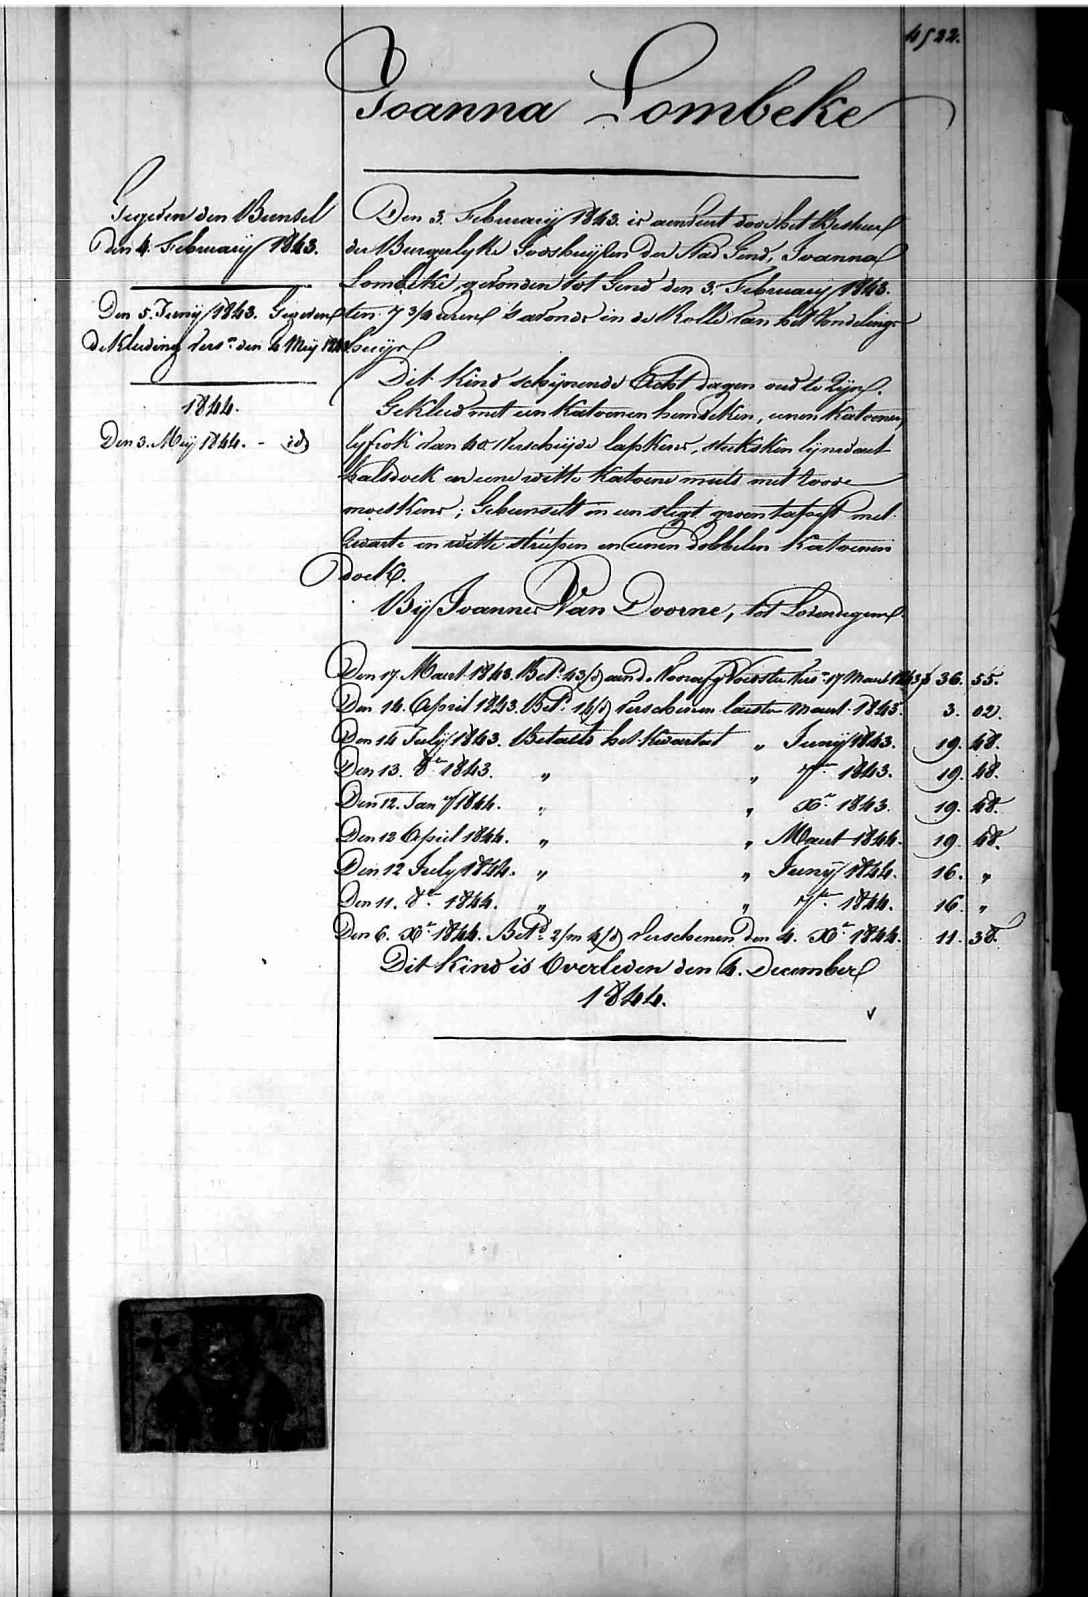 4522.
Joanna Lombeke
Gegeven den Bunsel
Den 4 February 1843.
Den 5. Juny 1843. Gegeven
de Kleeding vers.n den 4 Mey 1843
1844.
Den 3. Mey 1844. - id
Den 3. February 1843. is aenveert door het Bestuer
der Burgerlyke Godshuyzen der Stad Gend, Joanna
Lombeke, gevonden tot Gend den 3. February 1843.
ten 7 3/4 uren 's avonds in de Rolle van het Vondelings
huys
Dit Kind schynende Acht dagen oud te Zyn.
Gekleed met een Katoenen hemdeken, eenen Katoenen
lyfrok van 40 verscheyde lapkens, stuksken lynwaet
halsdoek en eene witte Katoene muts met roode
moeskens; Gebunselt in een slegt groen tapeyt met
Zwarte en witte streepen en eenen dobbelen Katoenen
doek.
By Joannes Van Doorne, tot Lovendegem
Den 17 Maert 1843. Bet.d 43/d aen de Voorafg. Voedster vers.n 17 Maert 1843 f 36. 55.
Den 14 April 1843. Bet.d 14/d verschenen laesten maert 1843. 3. 02.
Den 14 July 1843. Betaelt het Kwartael „ Juny 1843. 19. 48.
Den 13. 8.er 1843. „ „ 7.er 1843. 19. 48.
Den 12. Jan.y 1844. „ „ X.r 1843. 19. 48.
Den 12 April 1844. „ „ Maert 1844. 19. 48.
Den 12 July 1844. „ „ Juny 1844. 16. „
Den 11. 8.er 1844. „ „ 7.er 1844. 16. „
Den 6. X.r 1844. Bet.d 2/m 4/d verschenen den 4. X.r 1844. 11. 38.
Dit Kind is Overleden den 4. December
1844.